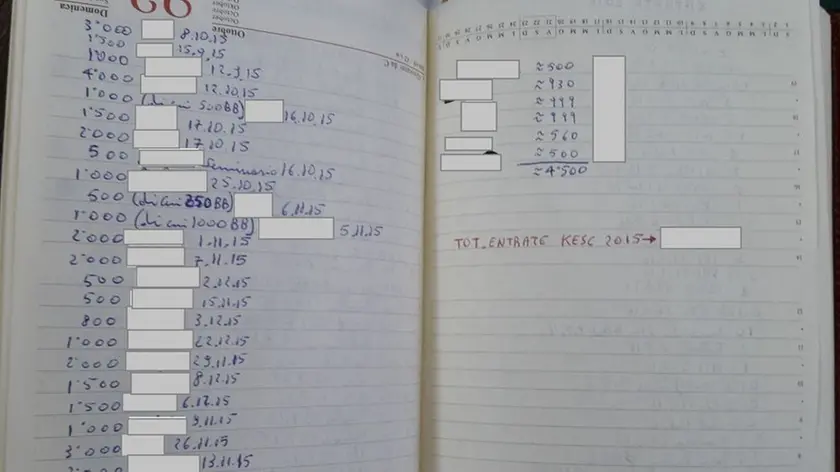 Domenica
29
Ottobre
October
3'000 8.10.15
1'500 15.9.15
1'000 12.9.15
4'000 12.10.15
1'000 (di cui 500BB) 16.10.15
1'500 17.10.15
2'000 17.10.15
500 Seminario 16.10.15
1'000 25.10.15
500 (di cui 250BB) 6.11.15
1'000 (di cui 1000BB) 5.11.15
2'000 1.11.15
2'000 7.11.15
500 2.12.15
500 15.11.15
800 3.12.15
1'000 22.12.15
2'000 29.11.15
1'500 8.12.15
1'500 6.12.15
1'000 9.11.15
3'000 26.11.15
13.11.15
≈ 500
≈ 930
≈ 999
≈ 999
≈ 560
≈ 500
≈ 4'500
TOT. ENTRATE KESC 2015→